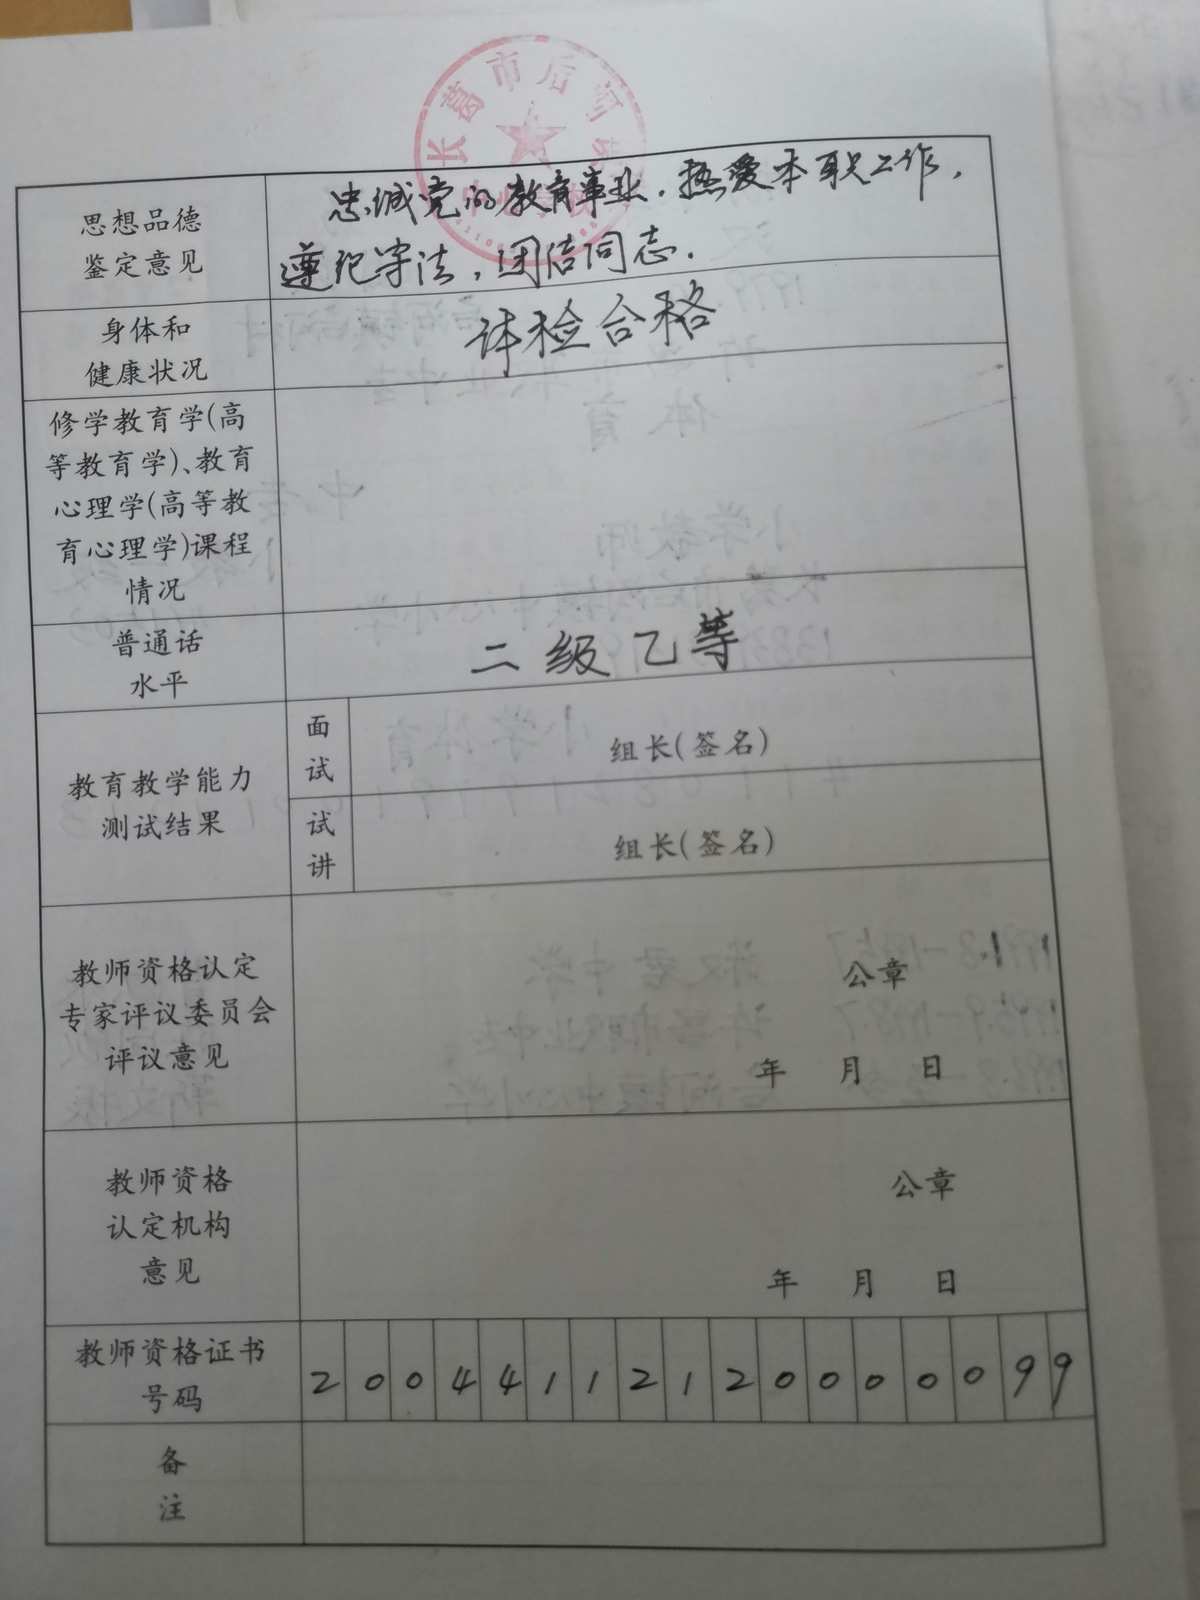 长葛市后河
思想品德
鉴定意见
忠诚党的教育事业，热爱本职工作，
遵纪守法，团结同志.
身体和
健康状况
体检合格
修学教育学(高
等教育学)、教育
心理学(高等教
育心理学)课程
情况
普通话
水平
二级乙等
教育教学能力
测试结果
面
试
组长(签名)
试
讲
组长(签名)
教师资格认定
专家评议委员会
评议意见
公章
年 月 日
教师资格
认定机构
意见
公章
年 月 日
教师资格证书
号码
2 0 0 4 4 1 1 2 1 2 0 0 0 0 0 9 9
备
注